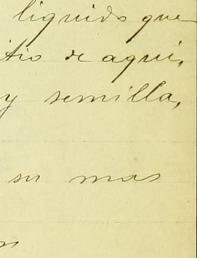 liquido que
itio de aqui,
y semilla,
su mas